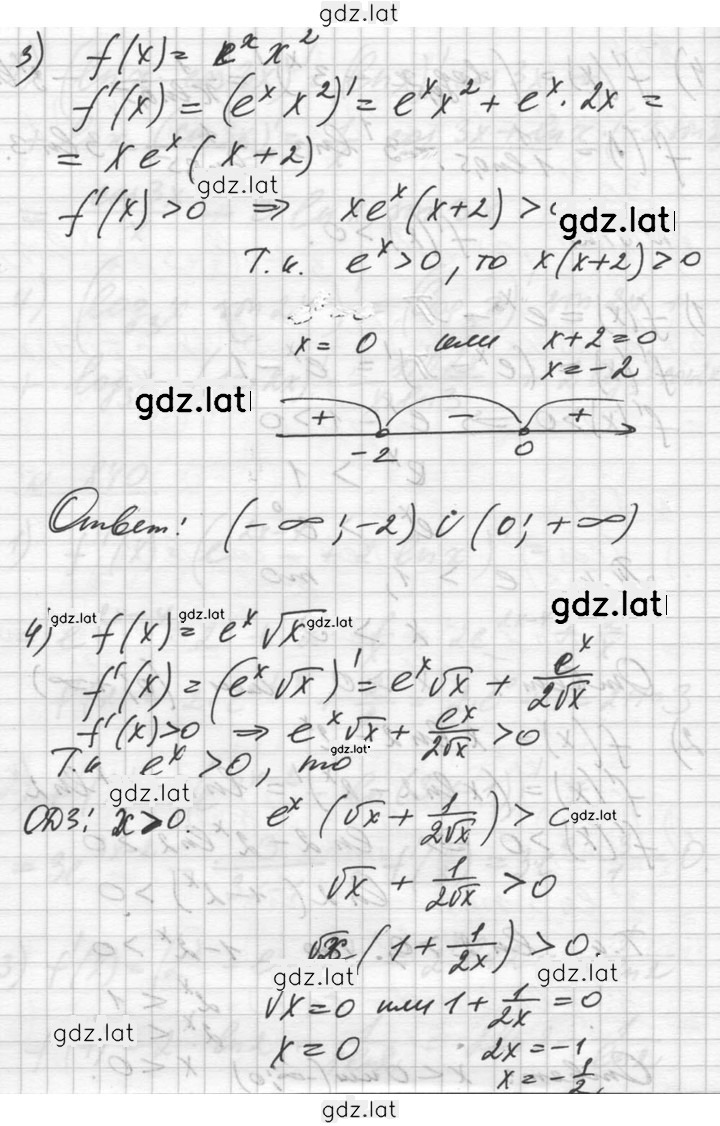 gdz.lat
3) f(x) = e^x x^2
f'(x) = (e^x x^2)' = e^x x^2 + e^x · 2x =
= x e^x (x+2)
gdz.lat
f'(x) > 0 ⇒ x e^x (x+2) >
gdz.lat
Т.к. e^x > 0, то x(x+2) > 0
x = 0 или x+2 = 0
x = -2
gdz.lat
+ - +
-2 0
Ответ: (-∞; -2) ∪ (0; +∞)
gdz.lat
4) f(x) = e^x √x
gdz.lat gdz.lat gdz.lat
f'(x) = (e^x √x)' = e^x √x + e^x/(2√x)
f'(x) > 0 ⇒ e^x √x + e^x/(2√x) > 0
gdz.lat
Т.к. e^x > 0, то
gdz.lat
ОДЗ: x > 0. e^x (√x + 1/(2√x)) > 0
gdz.lat
√x + 1/(2√x) > 0
√x (1 + 1/(2x)) > 0.
gdz.lat gdz.lat
√x = 0 или 1 + 1/(2x) = 0
gdz.lat
x = 0 2x = -1
x = -1/2
gdz.lat